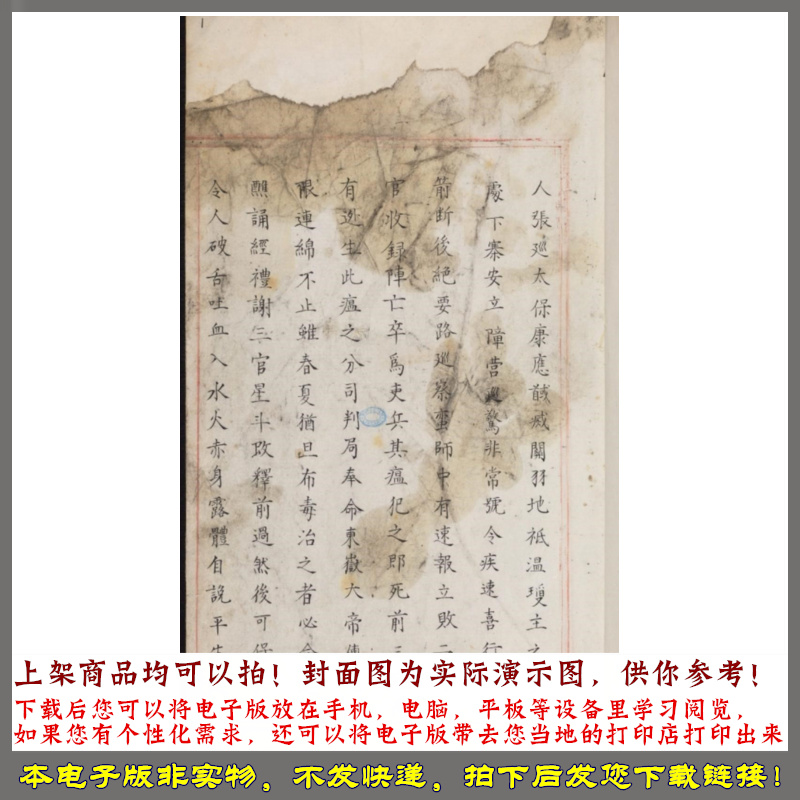 人張廵太保康應馘威關羽地祗温瓊主之
處下寨安立障营廵驚非常號令疾速喜行
箭断後絕要路廵察蛮師中有速報立敗二
官收録陣亡卒爲吏兵其瘟犯之即死前三
有逃生此瘟之分司判局奉命東嶽大帝
限連綿不止雖春夏猶旦布毒治之者必令
醮誦經禮謝三官星斗改釋前過然後可保
令人破舌吐血入水火赤身露體自說平生
上架商品均可以拍！封面图为实际演示图，供你参考！
下载后您可以将电子版放在手机，电脑，平板等设备里学习阅览，
如果您有个性化需求，还可以将电子版带去您当地的打印店打印出来
本电子版非实物，不发快递，拍下后发您下载链接！